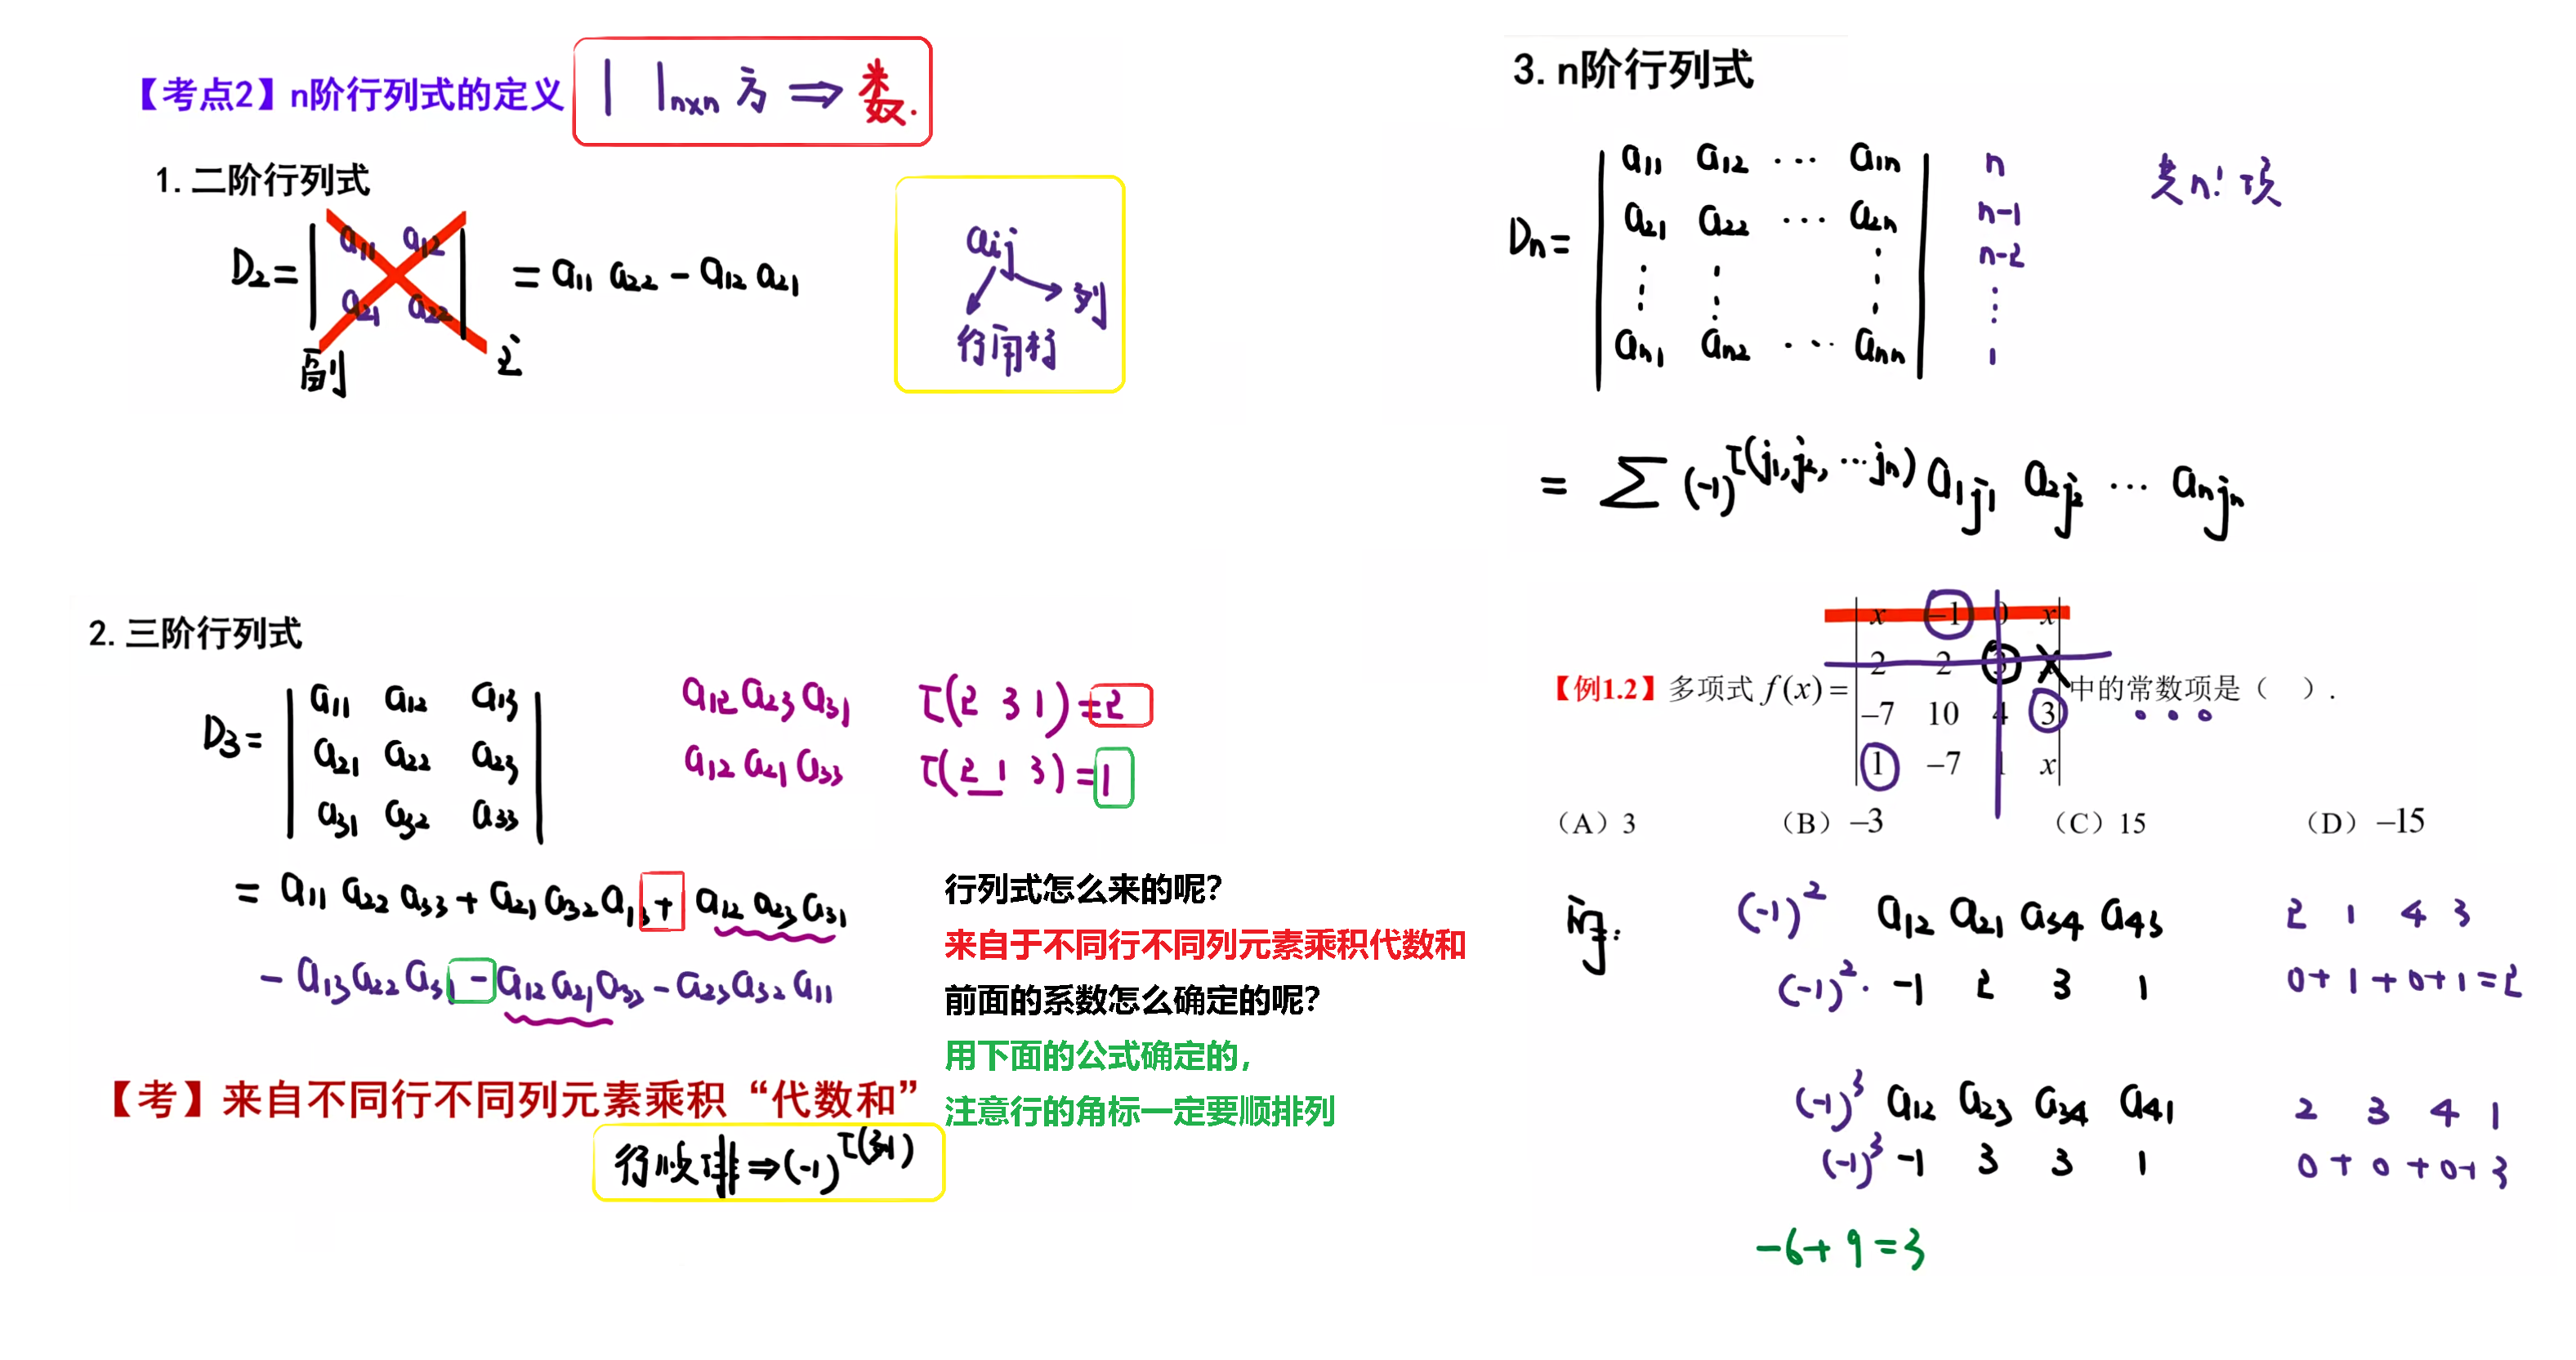 【考点2】n阶行列式的定义 | |n×n 方 ⇒ 数.
1.二阶行列式
D2= | a11 a12 | = a11 a22 - a12 a21
a21 a22
副 主
aij
行角标 列
2.三阶行列式
D3= | a11 a12 a13 |
a21 a22 a23
a31 a32 a33
a12 a23 a31 τ(2 3 1)=2
a12 a21 a33 τ(2 1 3)=1
= a11 a22 a33 + a21 a32 a13 + a12 a23 a31
- a13 a22 a31 - a12 a21 a33 - a23 a32 a11
【考】来自不同行不同列元素乘积“代数和”
行顺排⇒(-1)^τ(列)
行列式怎么来的呢?
来自于不同行不同列元素乘积代数和
前面的系数怎么确定的呢?
用下面的公式确定的,
注意行的角标一定要顺排列
3.n阶行列式
Dn= | a11 a12 ⋯ a1n | n 共n!项
a21 a22 ⋯ a2n n-1
⋮ ⋮ ⋮ n-2
⋮
an1 an2 ⋯ ann 1
= Σ (-1)^τ(j1,j2,⋯jn) a1j1 a2j2 ⋯ anjn
【例1.2】多项式 f(x)= 中的常数项是( ).
x -1 0 x
2 2 3 x
-7 10 4 3
1 -7 1 x
(A)3 (B)-3 (C)15 (D)-15
(-1)^2 a12 a21 a34 a43 2 1 4 3
(-1)^2· -1 2 3 1 0+1+0+1=2
(-1)^3 a12 a23 a34 a41 2 3 4 1
(-1)^3 -1 3 3 1 0+0+0+3
-6+9=3